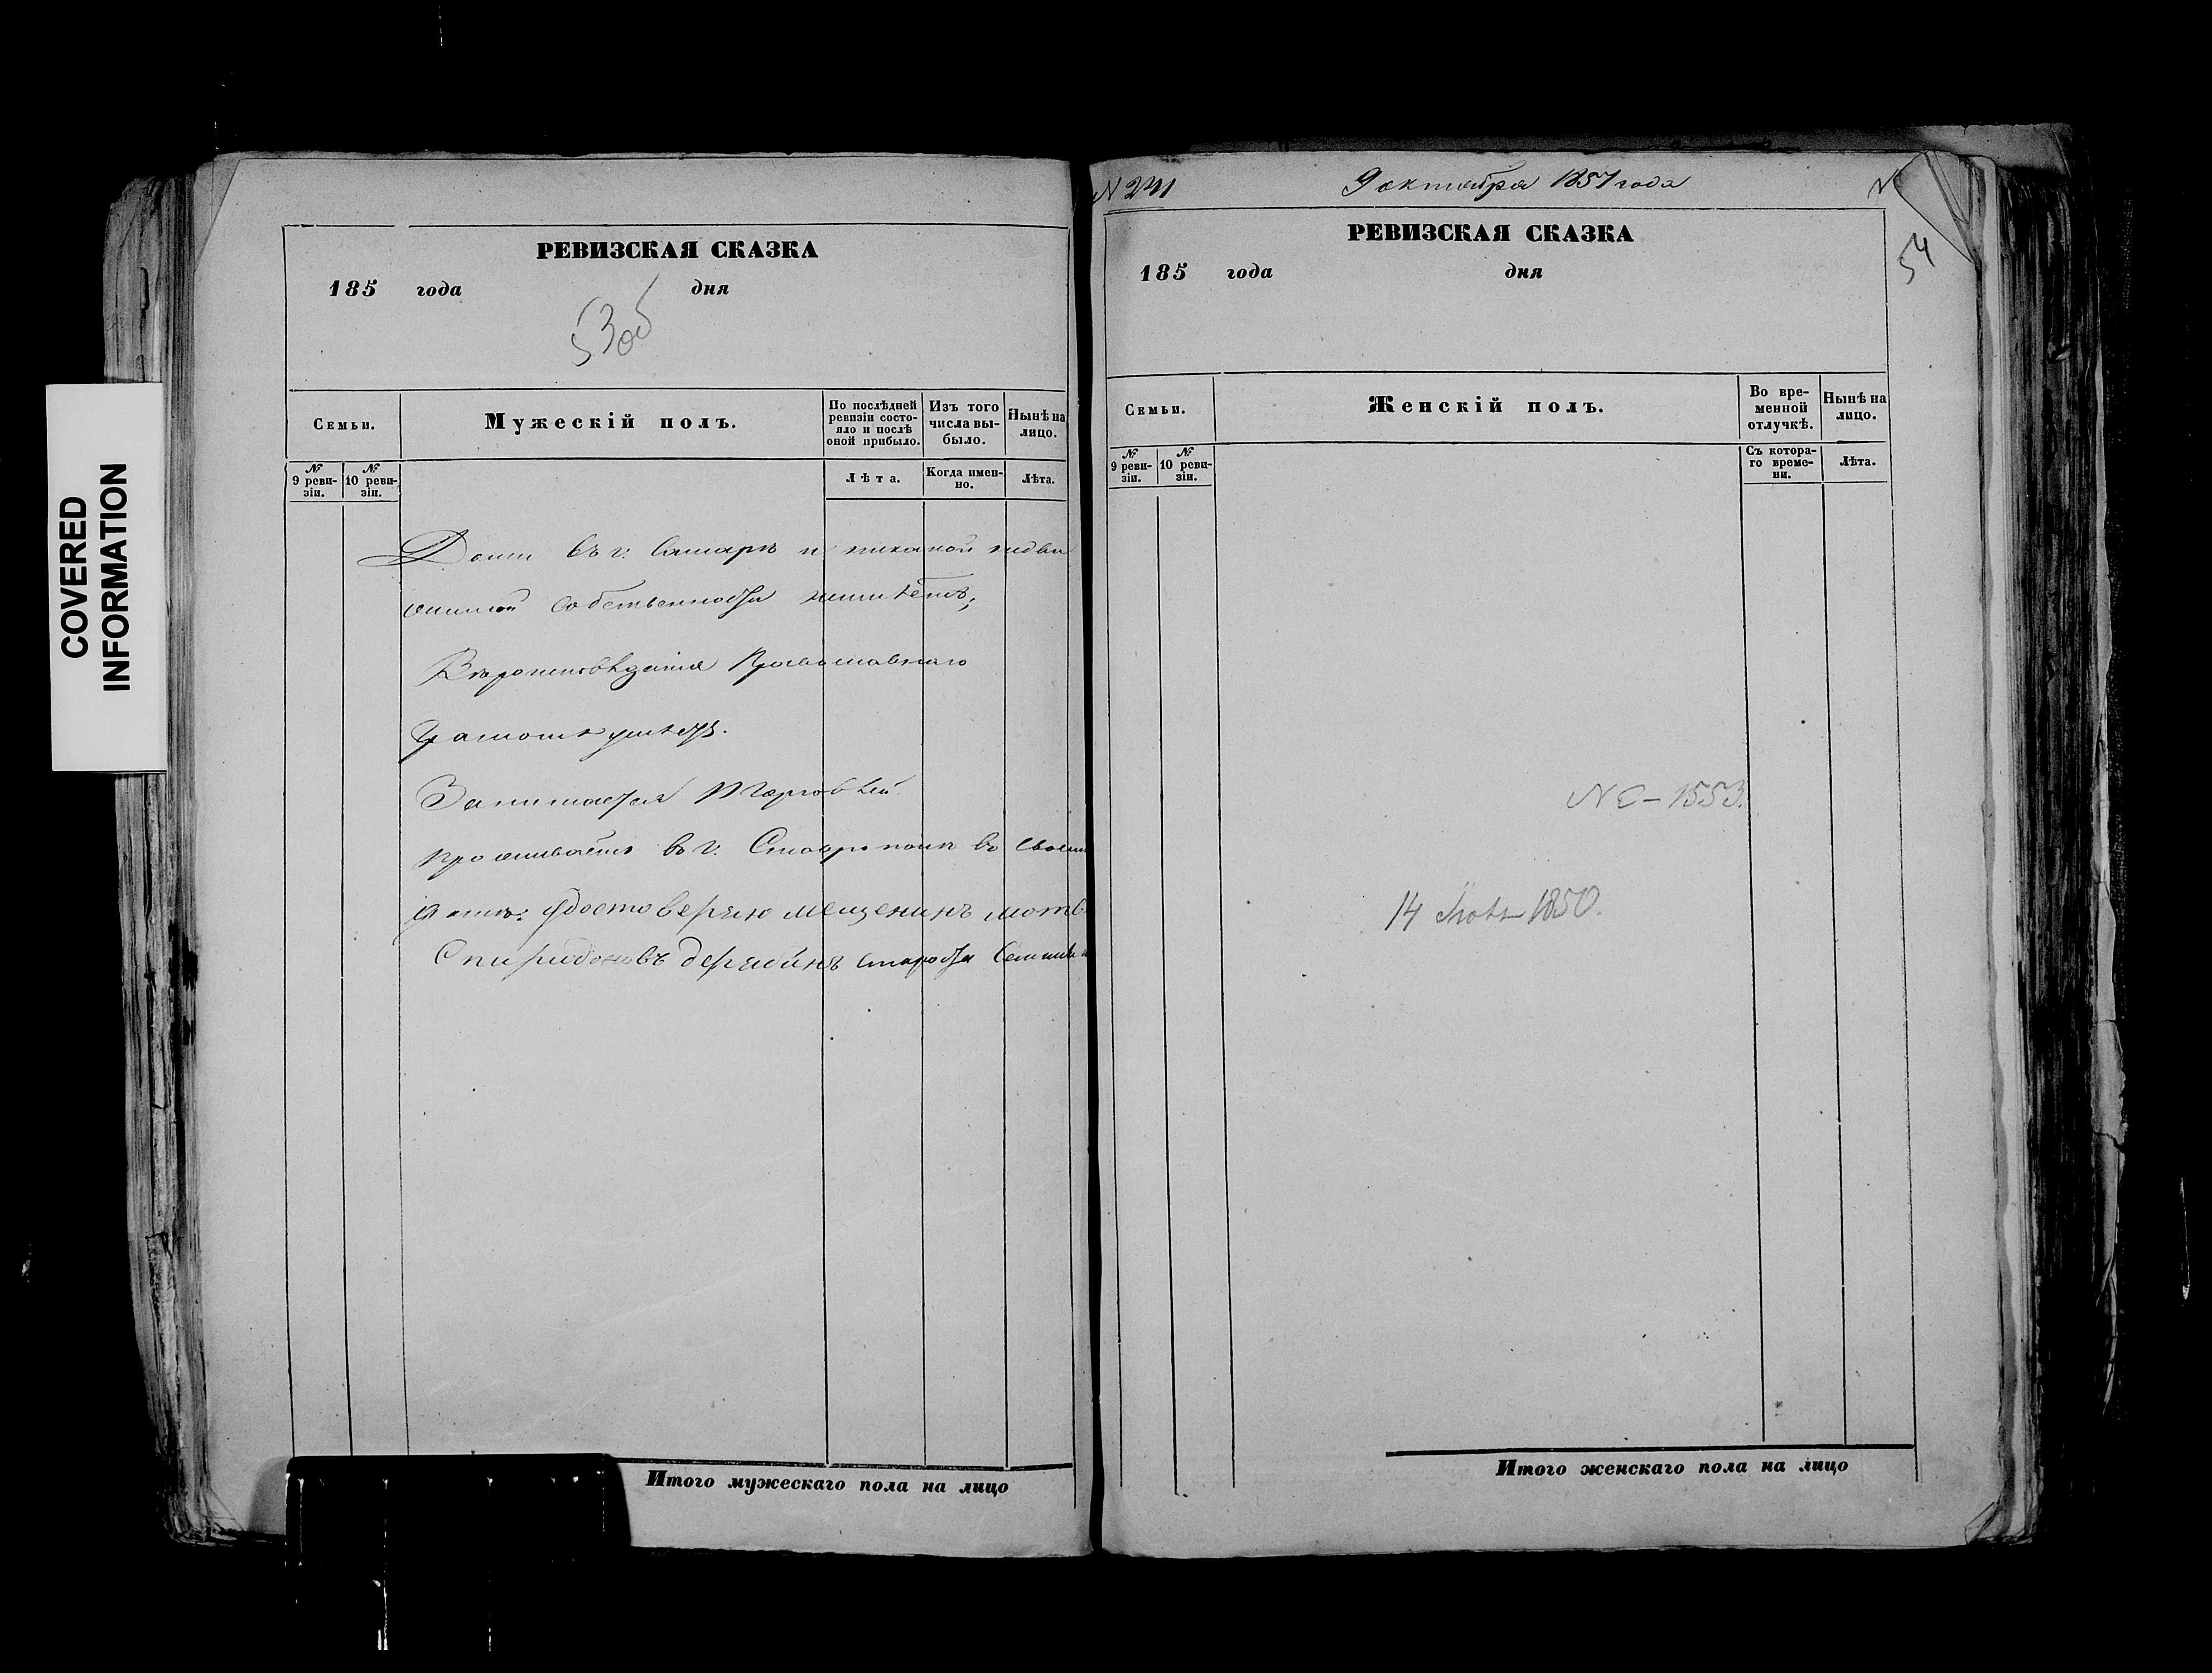 COVERED
INFORMATION
РЕВИЗСКАЯ СКАЗКА
185 года дня
53об
Семьи.
Мужескій полъ.
По послѣдней ревизіи состояло и послѣ оной прибыло.
Изъ того числа выбыло.
Нынѣ на лицо.
№ 9 ревизіи.
№ 10 ревизіи.
Лѣта.
Когда именно.
Лѣта.
Дома въ г. Самарѣ и никакой недви
жимой собственности не имѣетъ;
Вѣроисповѣданія Православнаго
Грамотѣ умѣетъ.
Занимается торговлей.
проживаетъ въ г. Ставрополѣ въ своемъ
домѣ: удостоверяю мещенинъ
Спиридоновъ староста
Итого мужескаго пола на лицо
N 241
9 октября 1857 года
N
54
РЕВИЗСКАЯ СКАЗКА
185 года дня
Семьи.
Женскій полъ.
Во временной отлучкѣ.
Нынѣ на лицо.
№ 9 ревизіи.
№ 10 ревизіи.
Съ котораго времени.
Лѣта.
1553.
14 1850.
Итого женскаго пола на лицо